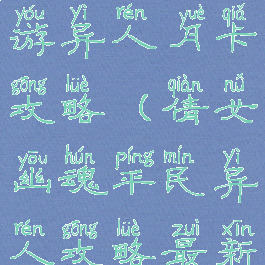 yóu yì rén yuè qiǎ
游异人月卡
gōng lüè qiàn nǚ
攻略（倩女
yōu hún píng mín yì
幽魂平民异
rén gōng lüè zuì xīn
人攻略最新